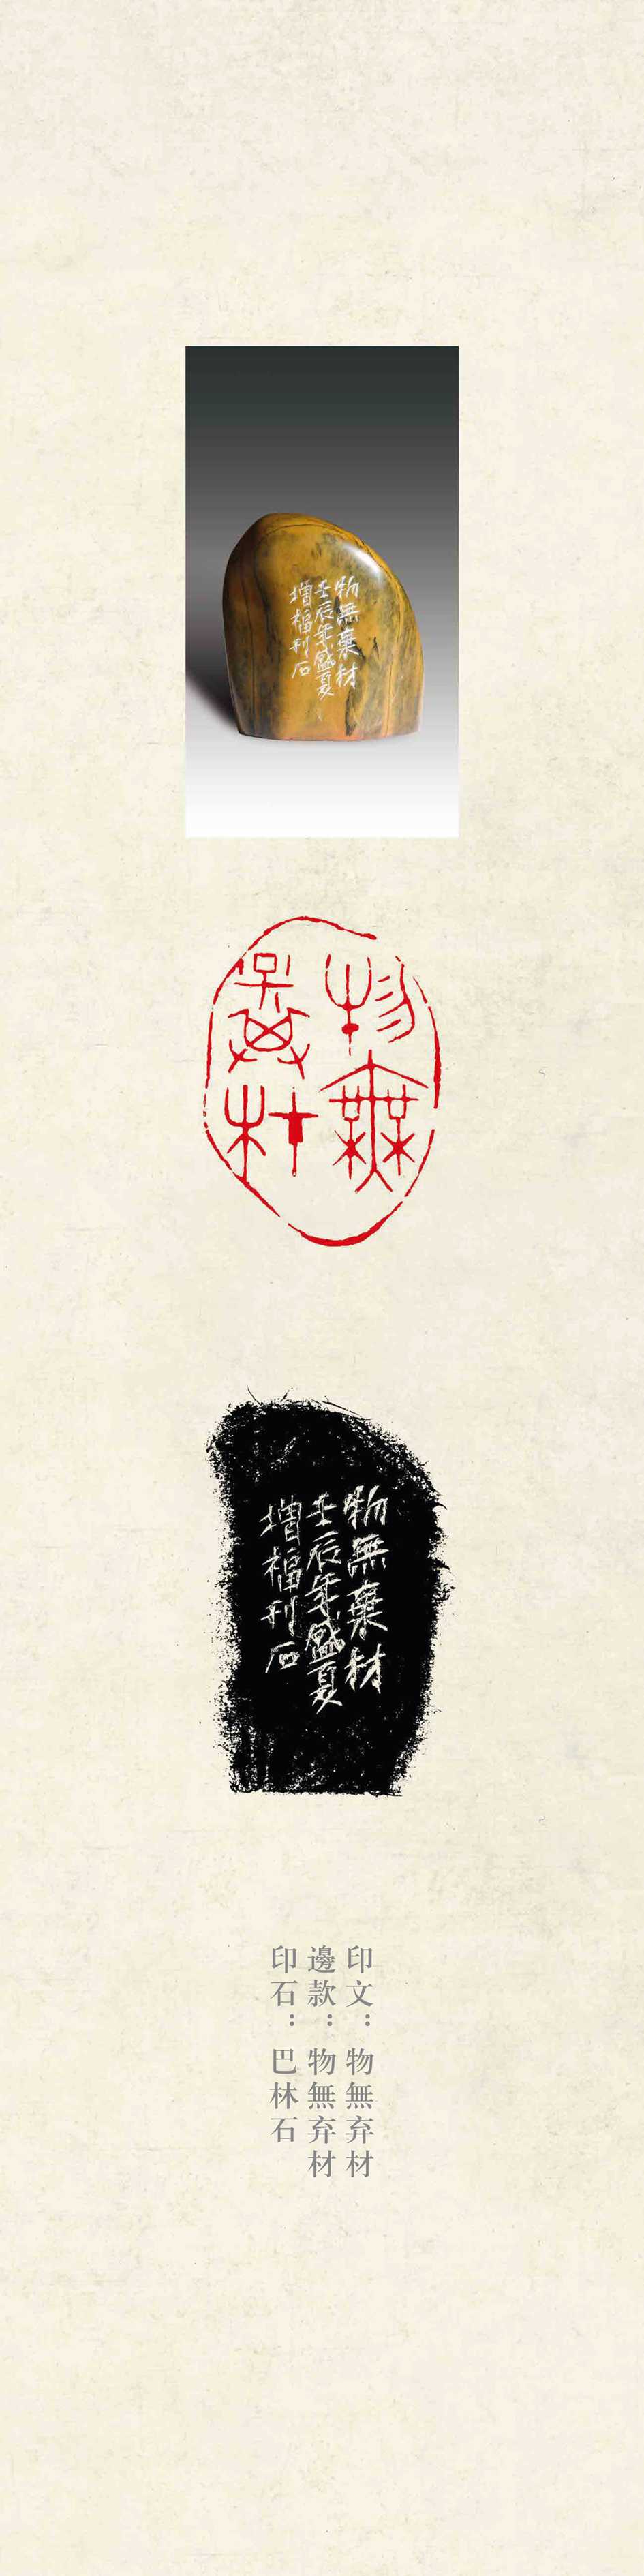 物無棄材
壬辰年盛夏
增福刊石
物無棄材
物無棄材
壬辰年盛夏
增福刊石
印文：物無弃材
邊款：物無弃材
印石：巴林石